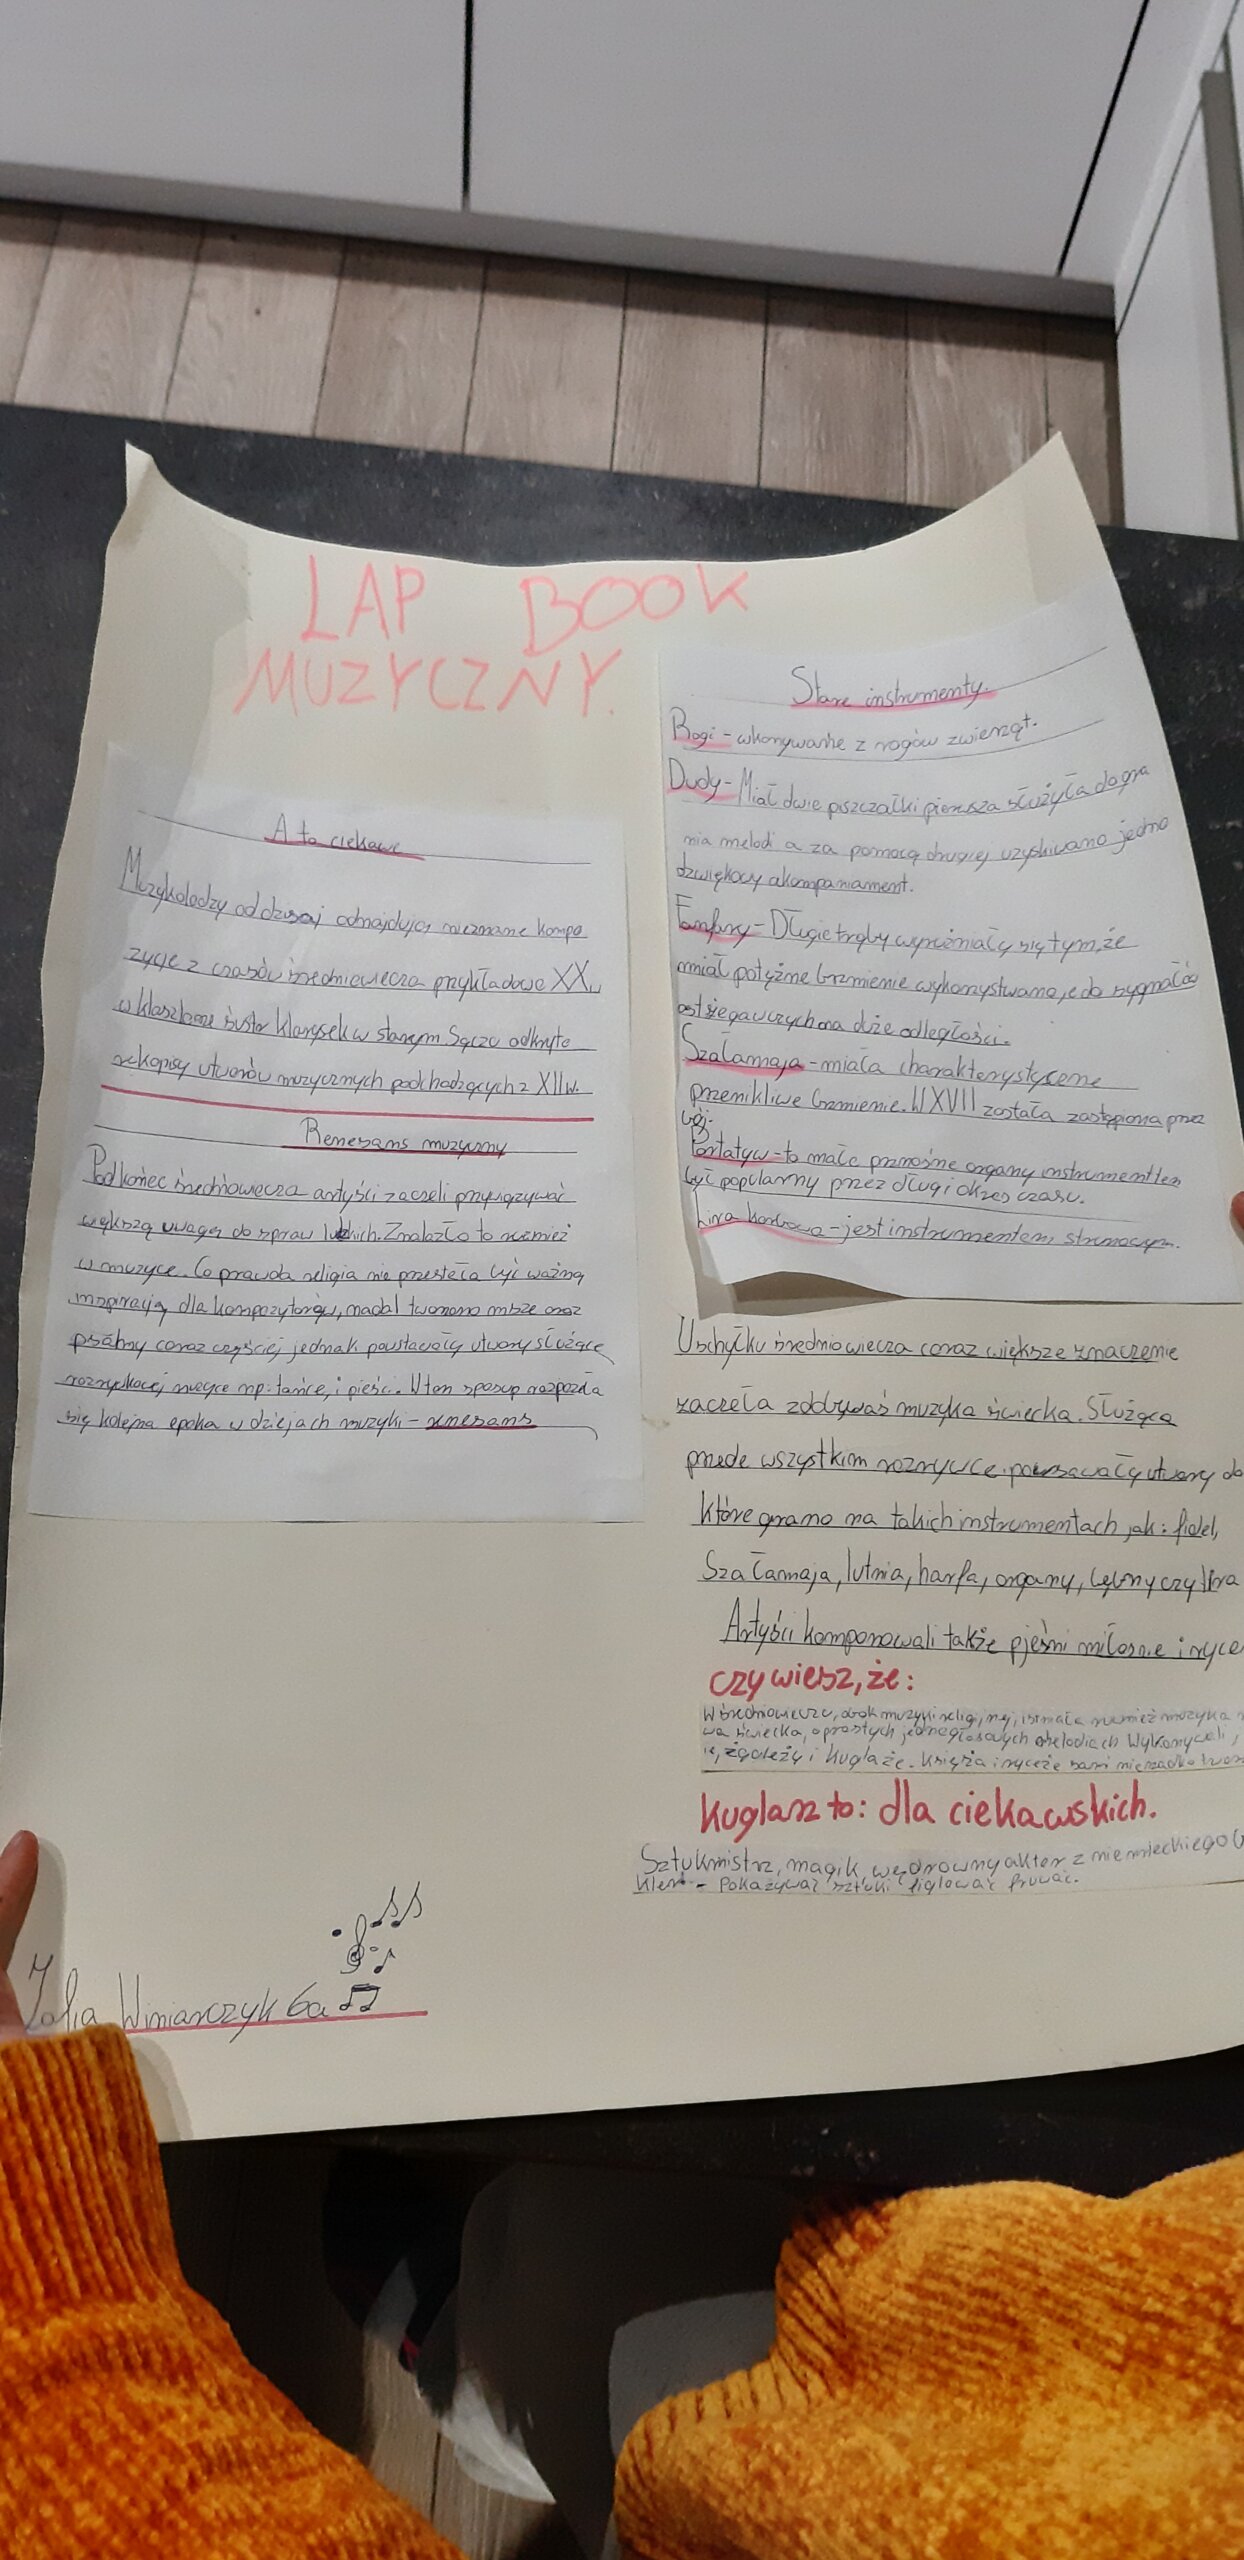 LAP BOOK
MUZYCZNY.
A to ciekawe
Muzykolodzy od dzisaj odnajdują nieznane kompo
zycje z czasów średniowiecza przykładowo XX w
w klasztorze sióstr Klarysek w starym Sączu odkryto
rekopisy utworów muzycznych podchadzących z XII w.
Renesans muzyczny
Pod koniec średniowiecza artyści zaczeli przywiązywać
większą uwagę do spraw ludzkich. Znalazło to również
w muzyce. Co prawda religia nie przestała być ważną
inspiracją dla kompozytorów, nadal tworzono msze oraz
psalmy coraz częściej jednak powstawały utwory służące
rozrywkowej muzyce np: tańce, i pieści. W ten sposup rozpoczła
się kolejna epoka w dziejach muzyki - renesans
Zofia Winiarczyk 6a
Stare instrumenty.
Rogi - wkonywane z rogów zwierząt.
Dudy - Miał dwie piszczałki pierwsza służyła do gra
nia melodi a za pomocą drugiej uzyskiwano jedno
dzwiękowy akompaniament.
Fanfary - Długie trąby wyróżniały się tym, że
miał potężne brzmienie wykorzystwano je do sygnałów
ostrzegawczych na duże odległości.
Szałamaja - miała charakterystyczne
przenikliwe brzmienie. W XVII została zastąpiona przez
obój.
Portatyw - to małe przenośne organy instrument ten
był popularny przez długi okres czasu.
Lira korbowa - jest instrumentem strunowym.
Uschyłku średniowiecza coraz większe znaczenie
zaczeła zdobywaś muzyka świecka. Służąca
przede wszystkim rozrywce. powstawały utwory do
które grano na takich instrumentach jak: fidel,
Szałamaja, lutnia, harfa, organy, bębny czy lira
Artyści komponowali także pjeśni miłosnie i ryce
czy wiesz, że:
W średniowieczu, obok muzyki religijnej, istniała również muzyka
wa świecka, o prostych jednogłosowych melodiach Wykonywali
i kuglaże. Książa i ryceże sami nierzadko tworz
Kuglarz to: dla ciekawskich.
Sztukmistrz, magik, wędrowny aktor z niemieckiego
kler - pokazywać sztuki figlować fruwać.